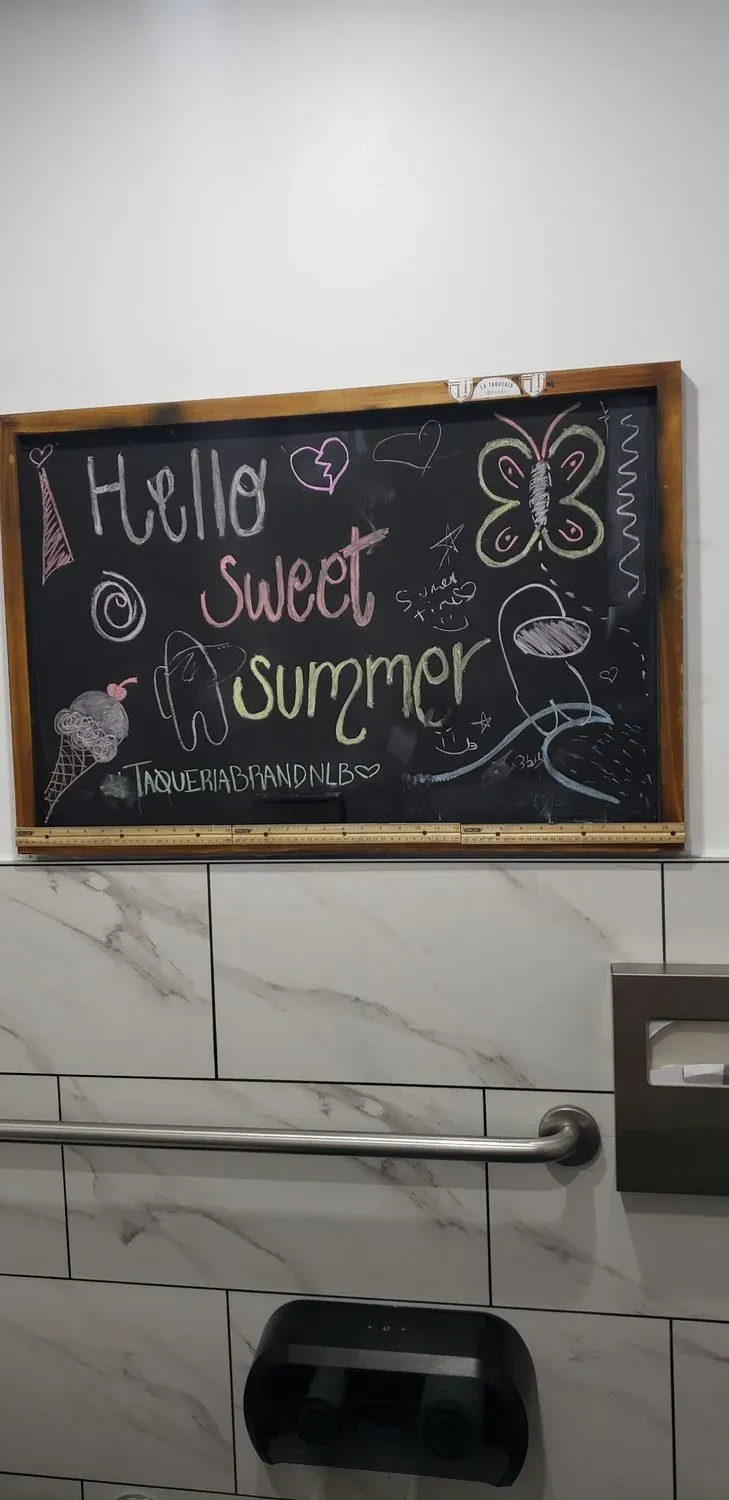 LA TAQUERIA
Hello
sweet
summer
TAQUERIABRANDNLB